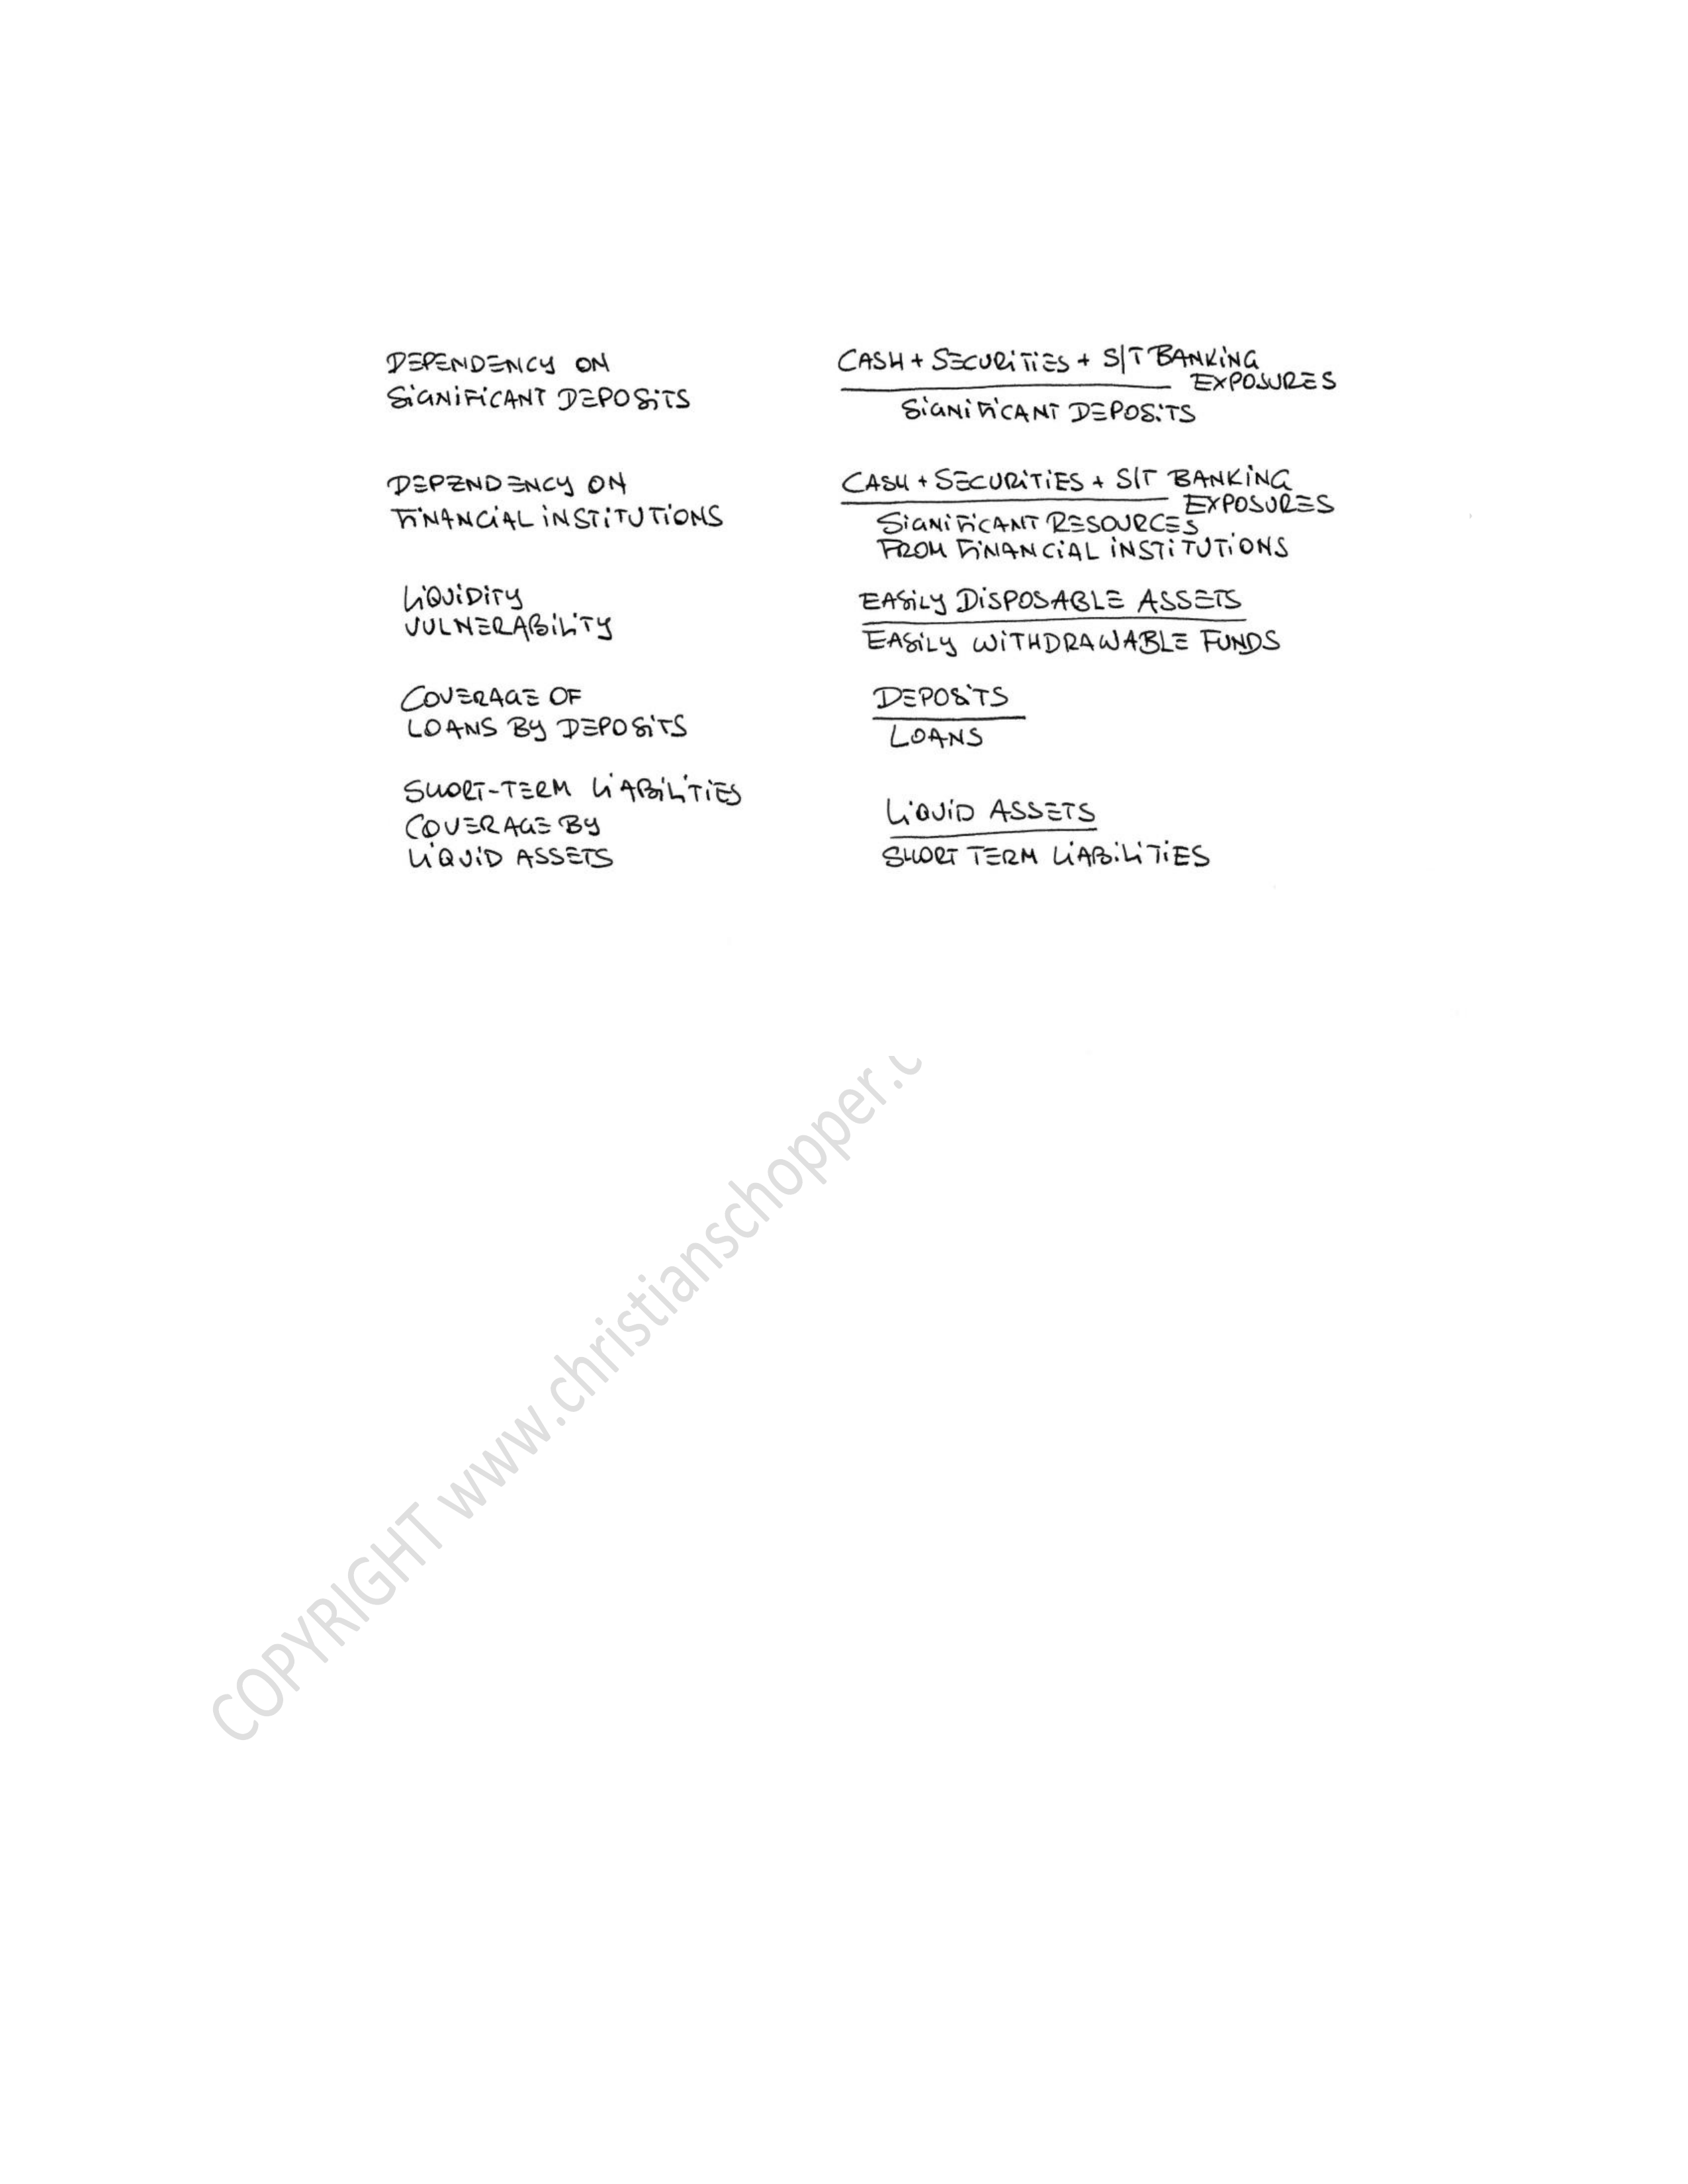 DEPENDENCY ON
SIGNIFICANT DEPOSITS
CASH + SECURITIES + S/T BANKING
EXPOSURES
SIGNIFICANT DEPOSITS
DEPENDENCY ON
FINANCIAL INSTITUTIONS
CASH + SECURITIES + S/T BANKING
EXPOSURES
SIGNIFICANT RESOURCES
FROM FINANCIAL INSTITUTIONS
LIQUIDITY
VULNERABILITY
EASILY DISPOSABLE ASSETS
EASILY WITHDRAWABLE FUNDS
COVERAGE OF
LOANS BY DEPOSITS
DEPOSITS
LOANS
SHORT-TERM LIABILITIES
COVERAGE BY
LIQUID ASSETS
LIQUID ASSETS
SHORT TERM LIABILITIES
COPYRIGHT www.christianschopper.c